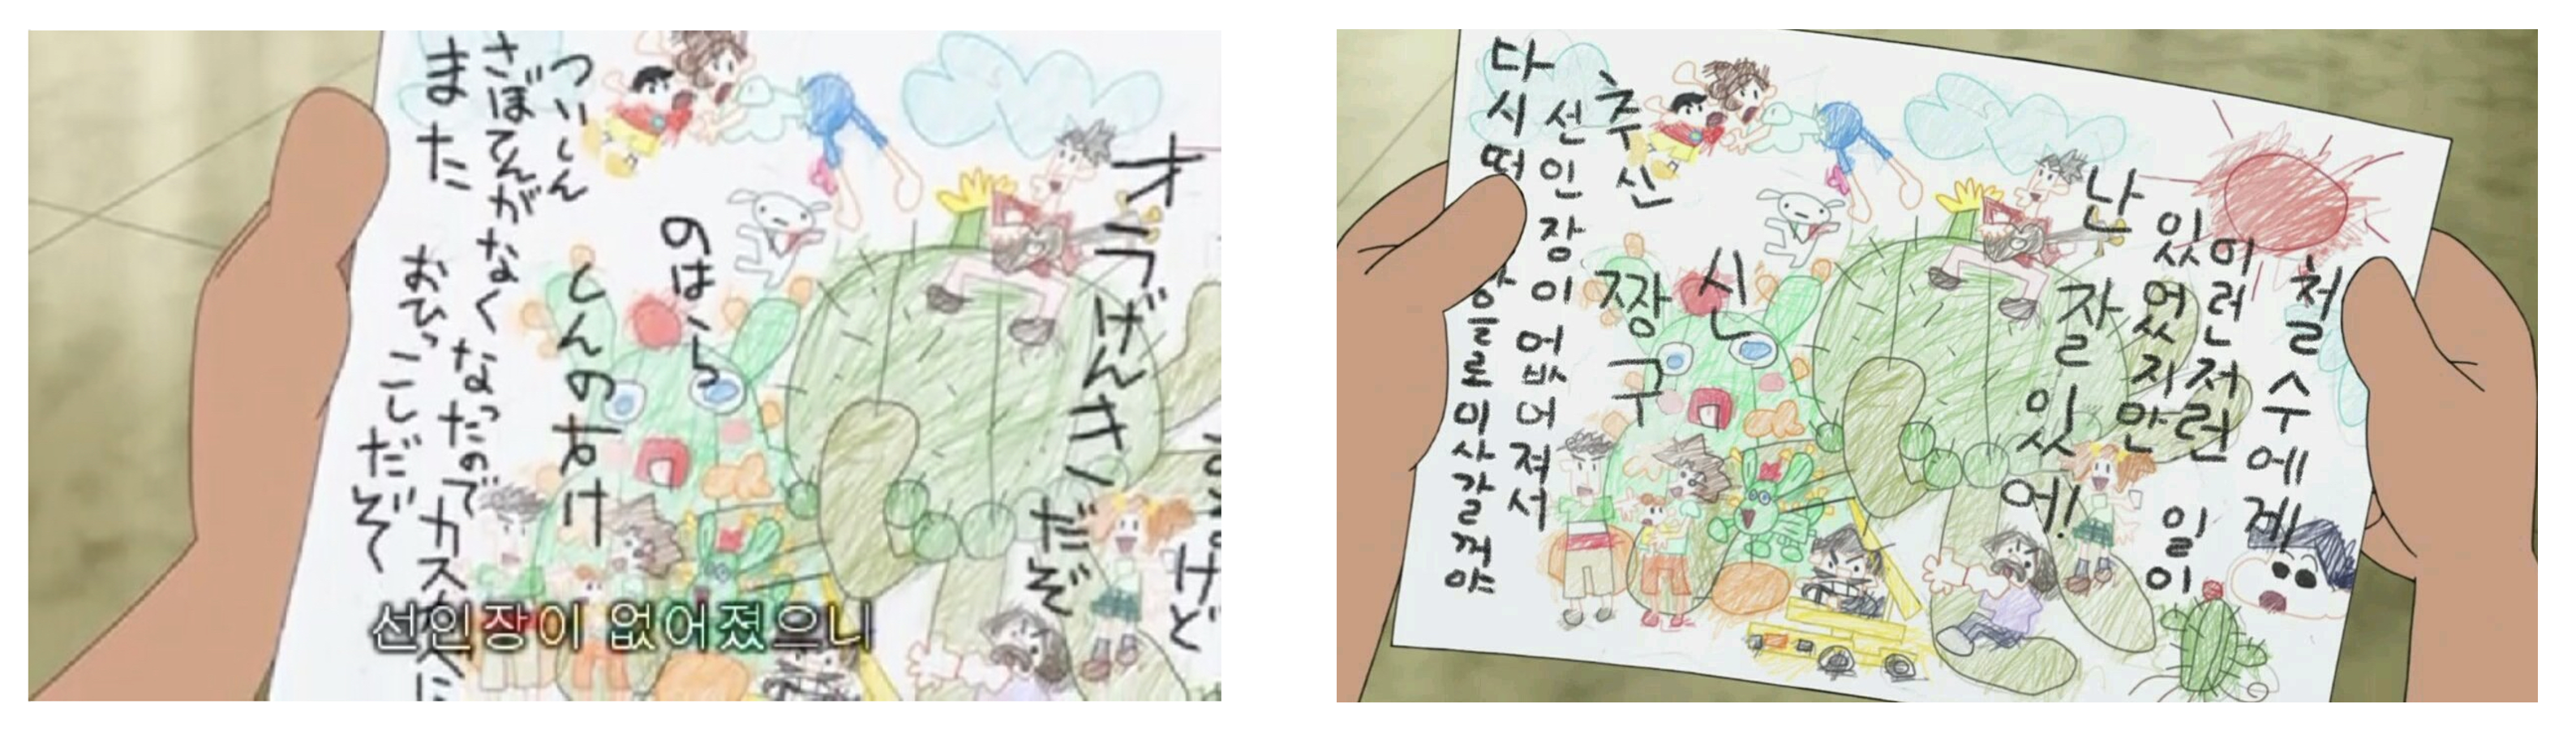 けど
オラげんきだぞ
のはら
しんのすけ
ついしん
さぼてんがなくなったのでカスカベに
また おひっこしだぞ
선인장이 없어졌으니
철수에게
이런저런 일이
있었지만
난 잘 있어!
신
짱구
추신
선인장이 없어져서
다시 을로 이사 갈 꺼야